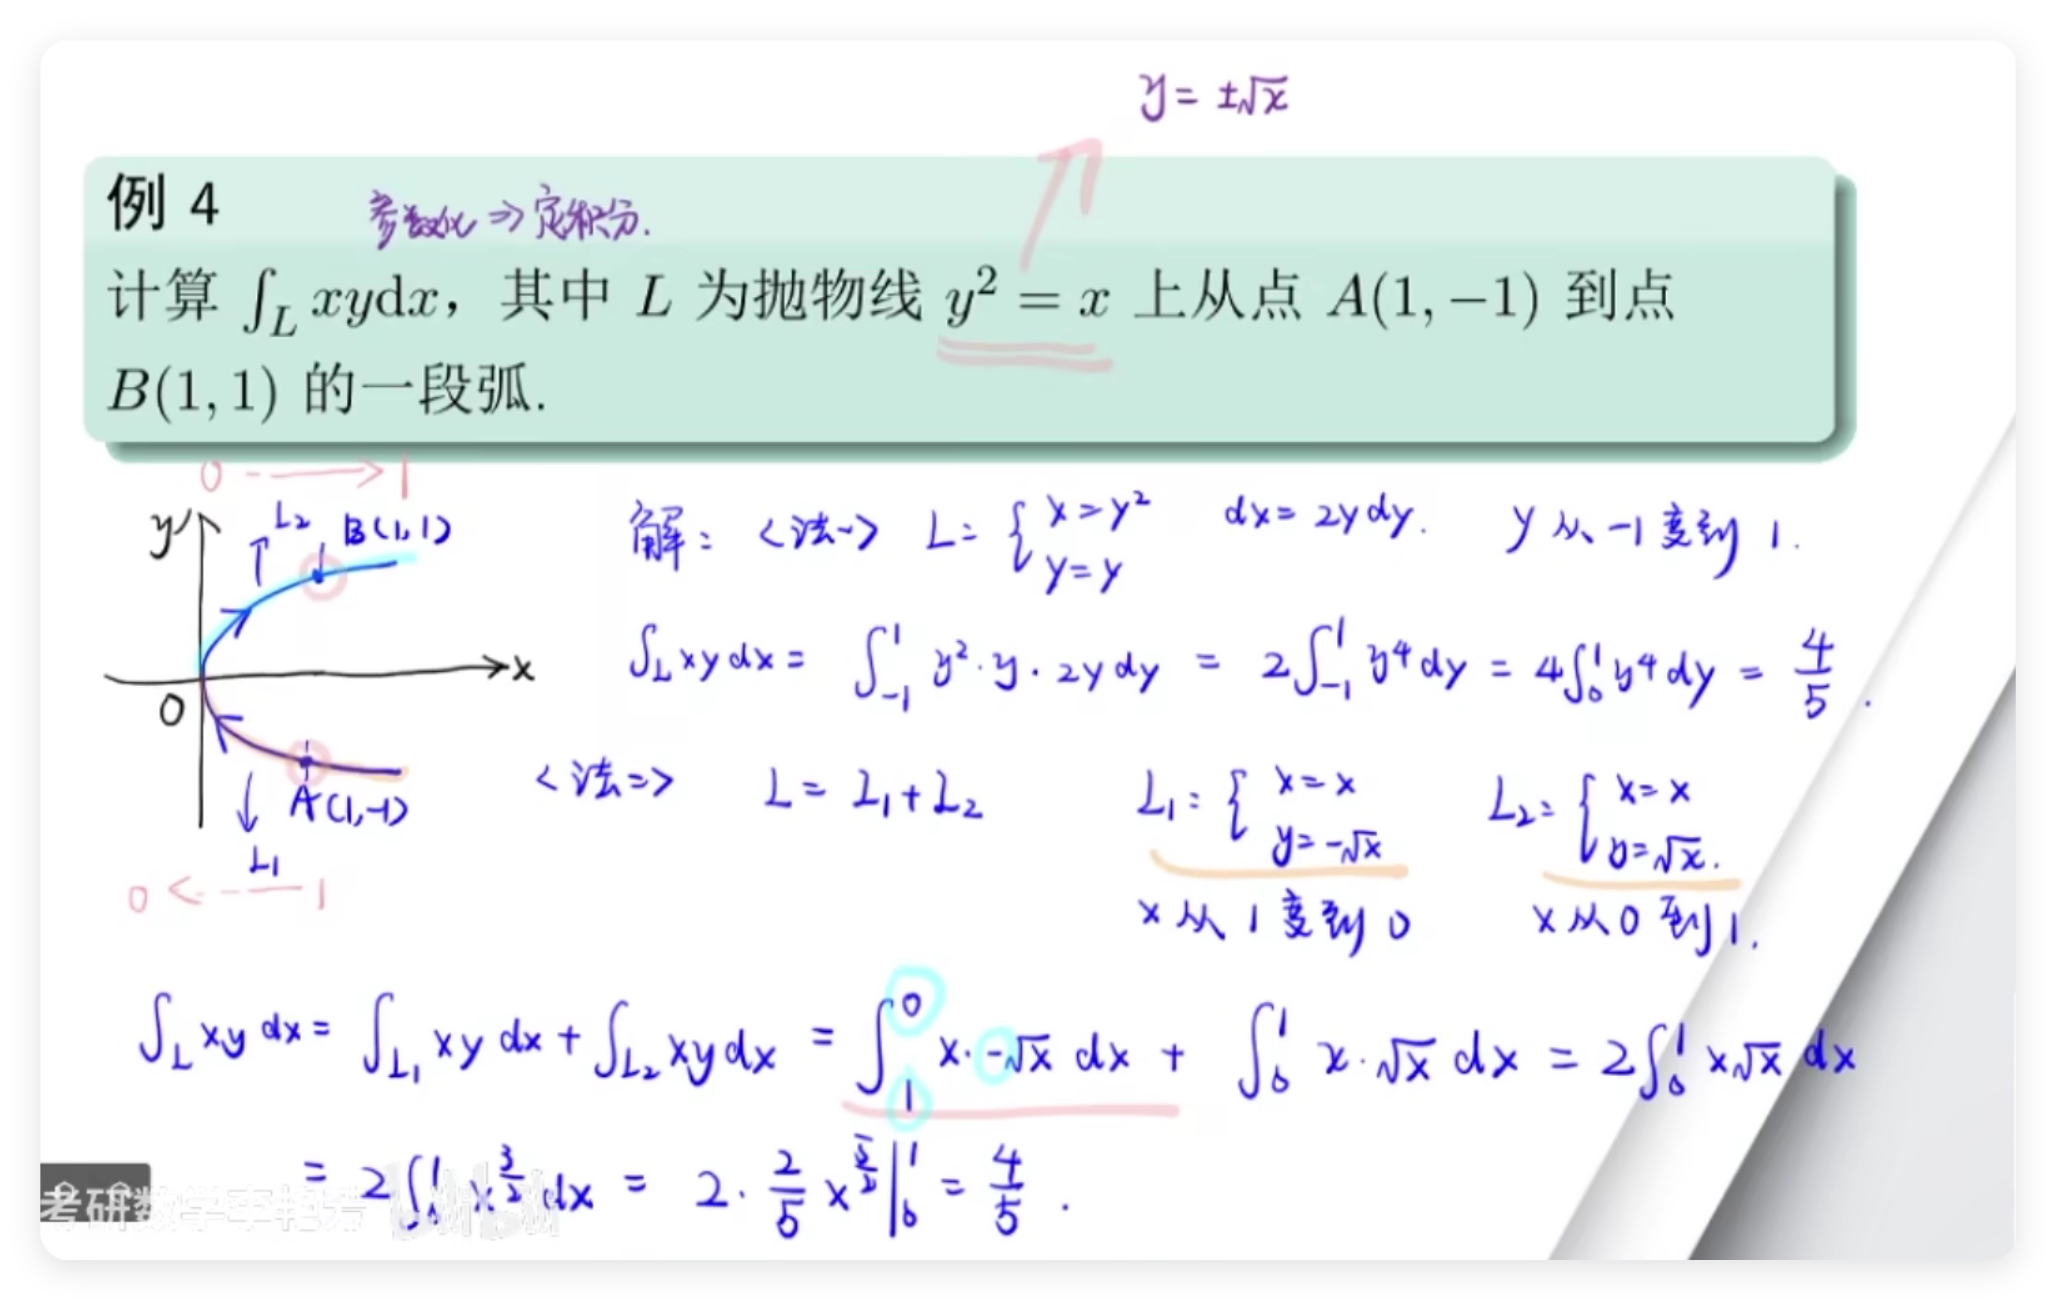 y = ±√x
例 4
参数化 ⇒ 定积分.
计算 ∫_L xydx，其中 L 为抛物线 y² = x 上从点 A(1, −1) 到点
B(1, 1) 的一段弧.
0 --→ 1
y
L₂
B(1,1)
x
0
A(1,-1)
L₁
0 ←-- 1
解: <法一> L: { x=y² y=y dx= 2y dy. y 从 -1 变到 1.
∫_L xy dx = ∫_{-1}^{1} y²·y·2y dy = 2∫_{-1}^{1} y⁴ dy = 4∫_0^1 y⁴ dy = 4/5.
<法二> L = L₁+L₂ L₁: { x=x y=-√x L₂: { x=x y=√x.
x 从 1 变到 0 x 从 0 到 1.
∫_L xy dx = ∫_{L₁} xy dx + ∫_{L₂} xy dx = ∫_1^0 x·-√x dx + ∫_0^1 x·√x dx = 2∫_0^1 x√x dx
= 2∫_0^1 x^{3/2} dx = 2·2/5 x^{5/2}|_0^1 = 4/5.
考研数学李艳芳